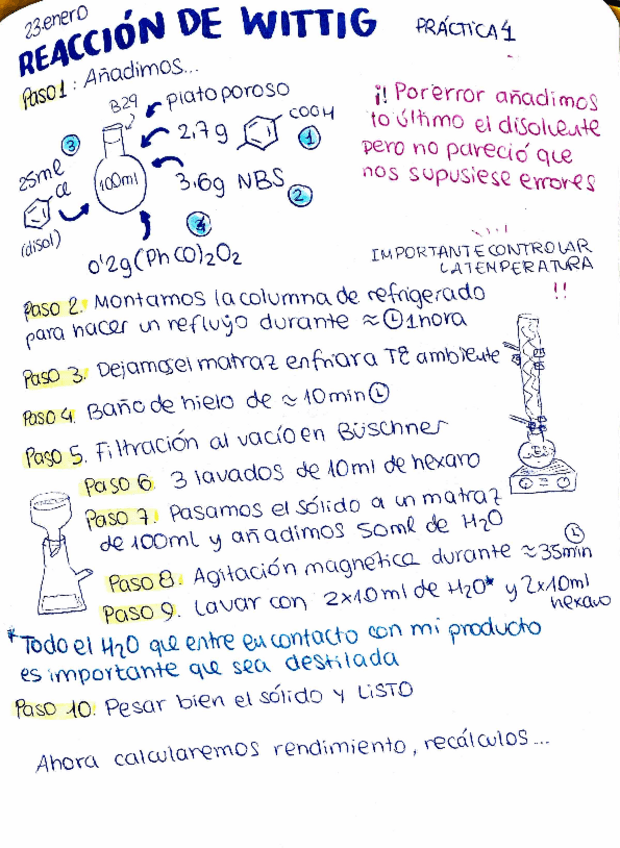 23·enero
REACCIÓN DE WITTIG
PRÁCTICA 1
Paso 1: Añadimos...
B29
plato poroso
2,7 g
COOH
1
3
25ml
Cl
(disol)
100ml
3,6g NBS
2
4
0'2g (PhCO)2O2
¡! Por error añadimos
lo último el disolvente
pero no pareció que
nos supusiese errores
IMPORTANTE CONTROLAR
LA TEMPERATURA
!!
Paso 2: Montamos la columna de refrigerado
para hacer un reflujo durante ≈ 1 hora
Paso 3: Dejamos el matraz enfriar a Tª ambiente
Paso 4. Baño de hielo de ≈ 10 min
Paso 5. Filtración al vacío en Büschner
Paso 6. 3 lavados de 10ml de hexano
Paso 7. Pasamos el sólido a un matraz
de 100ml y añadimos 50ml de H2O
Paso 8. Agitación magnética durante ≈ 35min
Paso 9. Lavar con 2x10ml de H2O* y 2x10ml
hexano
*Todo el H2O que entre en contacto con mi producto
es importante que sea destilada
Paso 10: Pesar bien el sólido y LISTO
Ahora calcularemos rendimiento, recálculos...